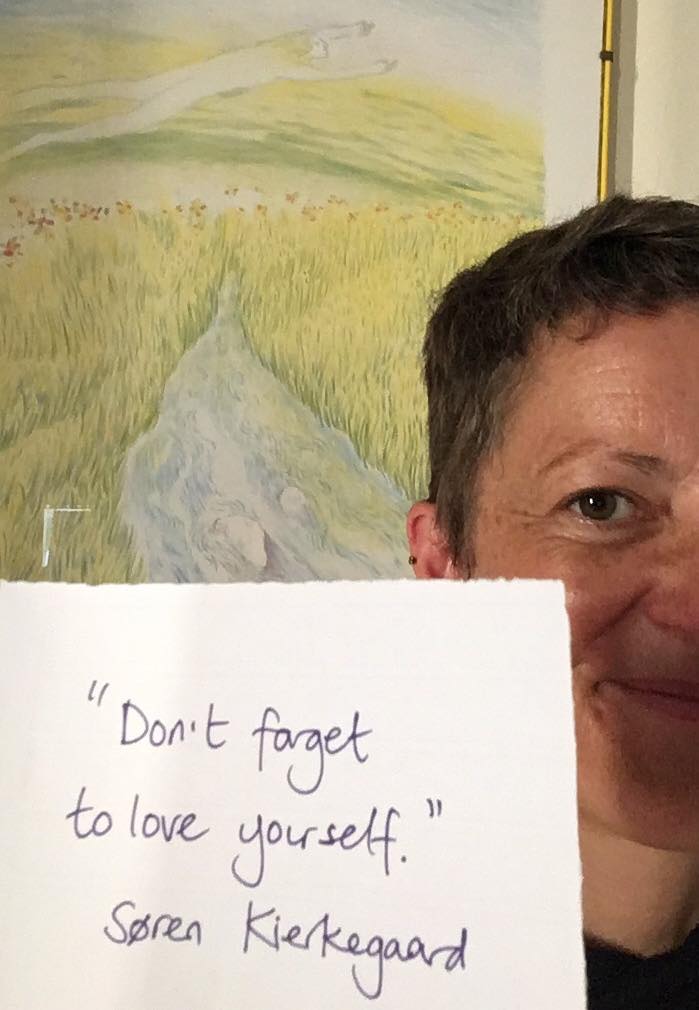 "Don't forget
to love yourself."
Søren Kierkegaard